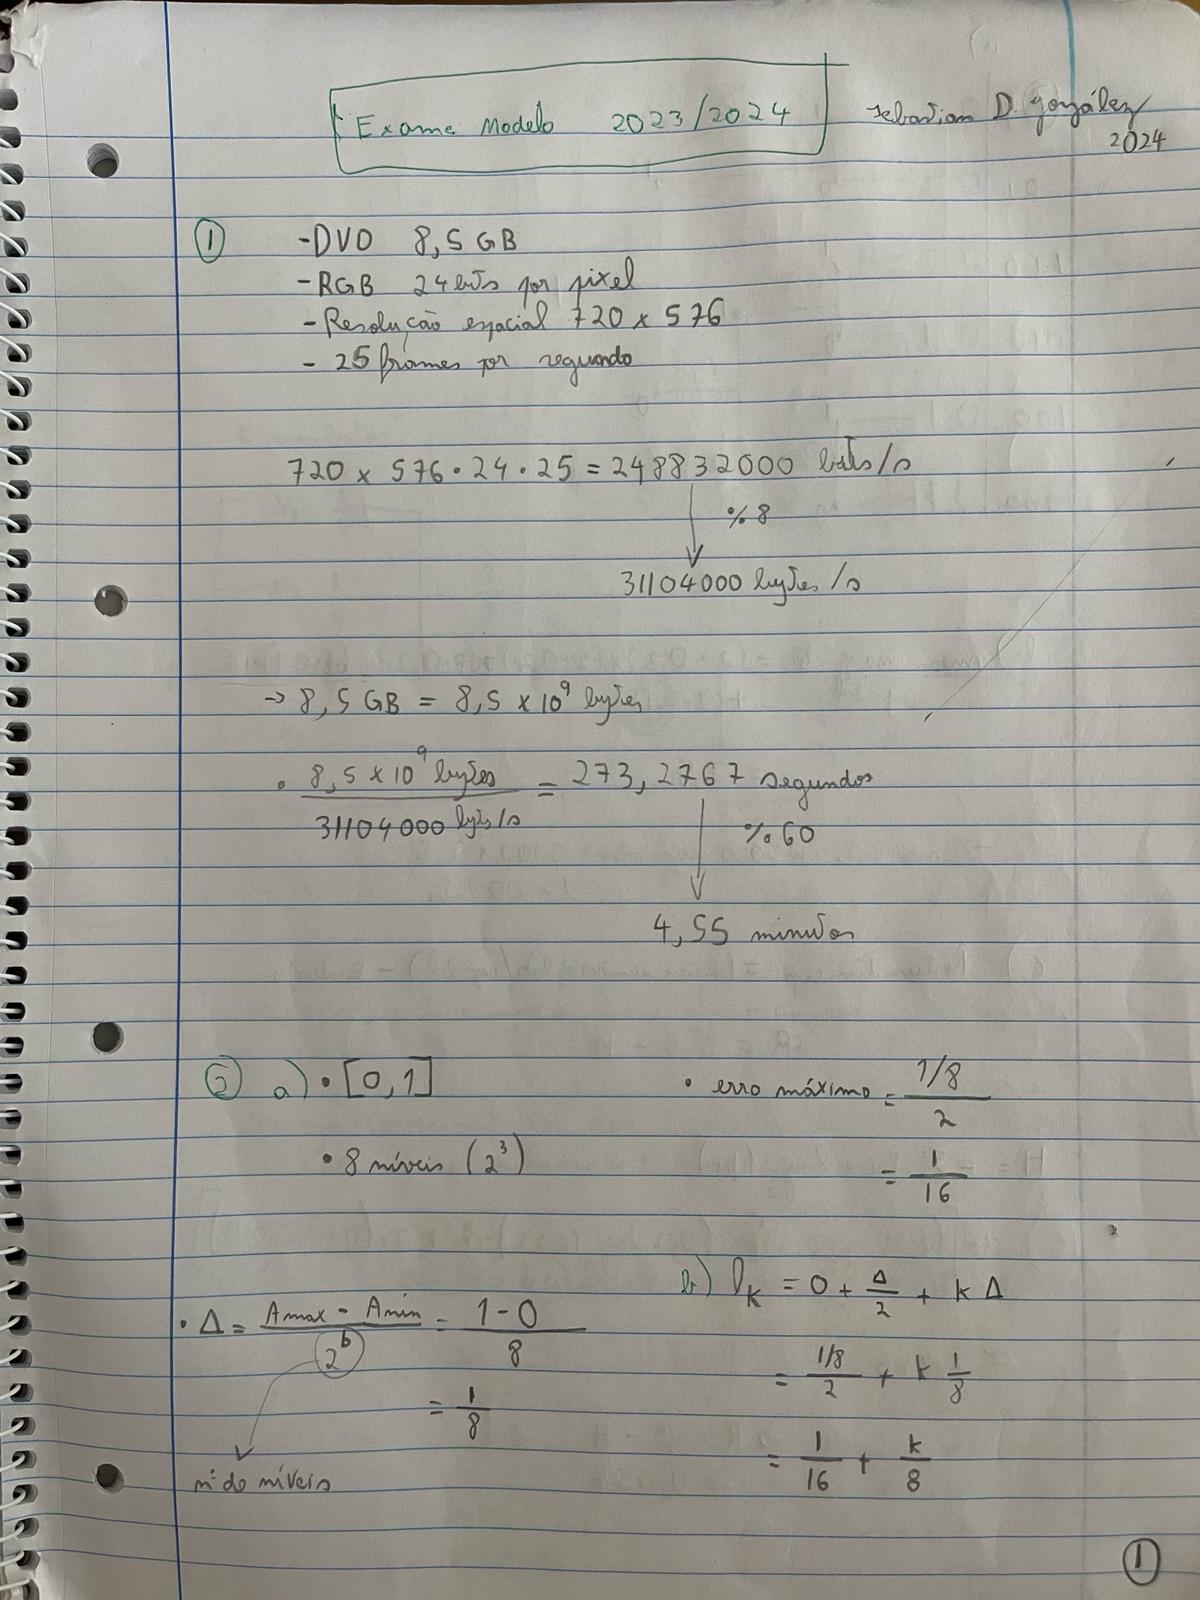 Exame Modelo 2023/2024
Sebastian D. González
2024
① - DVD 8,5 GB
- RGB 24 bits por pixel
- Resolução espacial 720 x 576
- 25 frames por segundo
720 x 576 · 24 · 25 = 248832000 bits/s
% 8
31104000 bytes/s
→ 8,5 GB = 8,5 x 10⁹ bytes
• 8,5 x 10⁹ bytes / 31104000 byts/s = 273,2767 segundos
% 60
4,55 minutos
② a) • [0,1]
• 8 níveis (2³)
• Δ = (Amax - Amin) / 2^b = (1 - 0) / 8
= 1/8
nº de níveis
• erro máximo = (1/8) / 2
= 1/16
b) l_K = 0 + Δ/2 + k Δ
= (1/8)/2 + k 1/8
= 1/16 + k/8
①